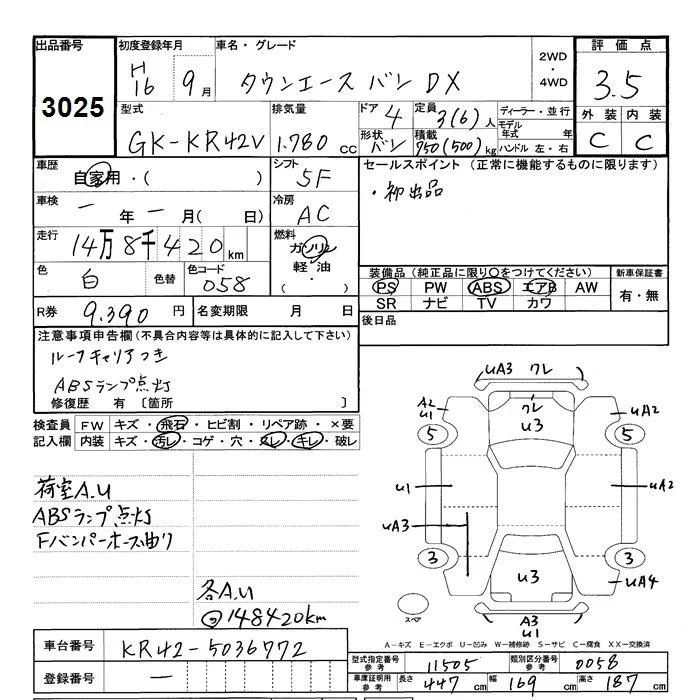 出品番号 初度登録年月 車名・グレード 2WD・4WD 評価点
3025 H16 9月 タウンエース バン DX 3.5
型式 排気量 ドア 4 定員 3(6)人 ディーラー・並行 外装 内装
GK-KR42V 1.780cc 形状 バン 積載 750(500)kg モデル年式 年 C C
ハンドル 左・右
車歴 自家用・( ) シフト 5F セールスポイント (正常に機能するものに限ります)
車検 一年一月( 日) 冷房 AC ・初出品
走行 14万8千420km 燃料 ガソリン
軽油・( )
色 白 色替 色コード 058 装備品(純正品に限り○をつけてください) 新車保証書
PS PW ABS エアB AW 有・無
SR ナビ TV カワ
R券 9.390円 名変期限 月 日 後日品
注意事項申告欄(不具合内容等は具体的に記入して下さい)
ルーフキャリアつき
ABSランプ点灯
修復歴 有〔箇所 〕
検査員 FW キズ・飛石・ヒビ割・リペア跡・×要
記入欄 内装 キズ・汚レ・コゲ・穴・スレ・キレ・破レ
荷室A.U
ABSランプ点灯
Fバンパーホース曲り
各A.U
148420km
UA3 ワレ
A2 U1 ワレ U3 UA2
5 5
U1 UA2
UA3
3 3
U3 UA4
スペア A3 U1
A-キズ E-エクボ U-凹み W-補修跡 S-サビ C-腐食 XX-交換済
車台番号 KR42-5036772
登録番号 一
型式指定番号 参考 11505 類別区分番号 参考 0058
車庫証明用 参考 長さ 447cm 幅 169cm 高さ 187cm